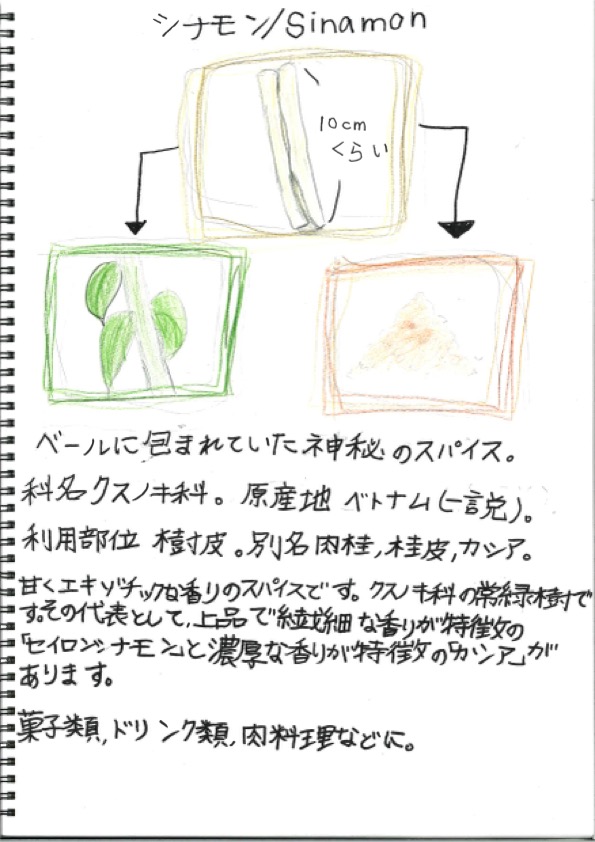 シナモン/Sinamon
10cm
くらい
ベールに包まれていた神秘のスパイス。
科名クスノキ科。原産地 ベトナム(一説)。
利用部位 樹皮。別名肉桂,桂皮,カシア。
甘くエキゾチックな香りのスパイスです。クスノキ科の常緑樹で
す。その代表として,上品で繊細な香りが特徴の
「セイロンシナモン」と濃厚な香りが特徴の「カシア」が
あります。
菓子類,ドリンク類,肉料理などに。